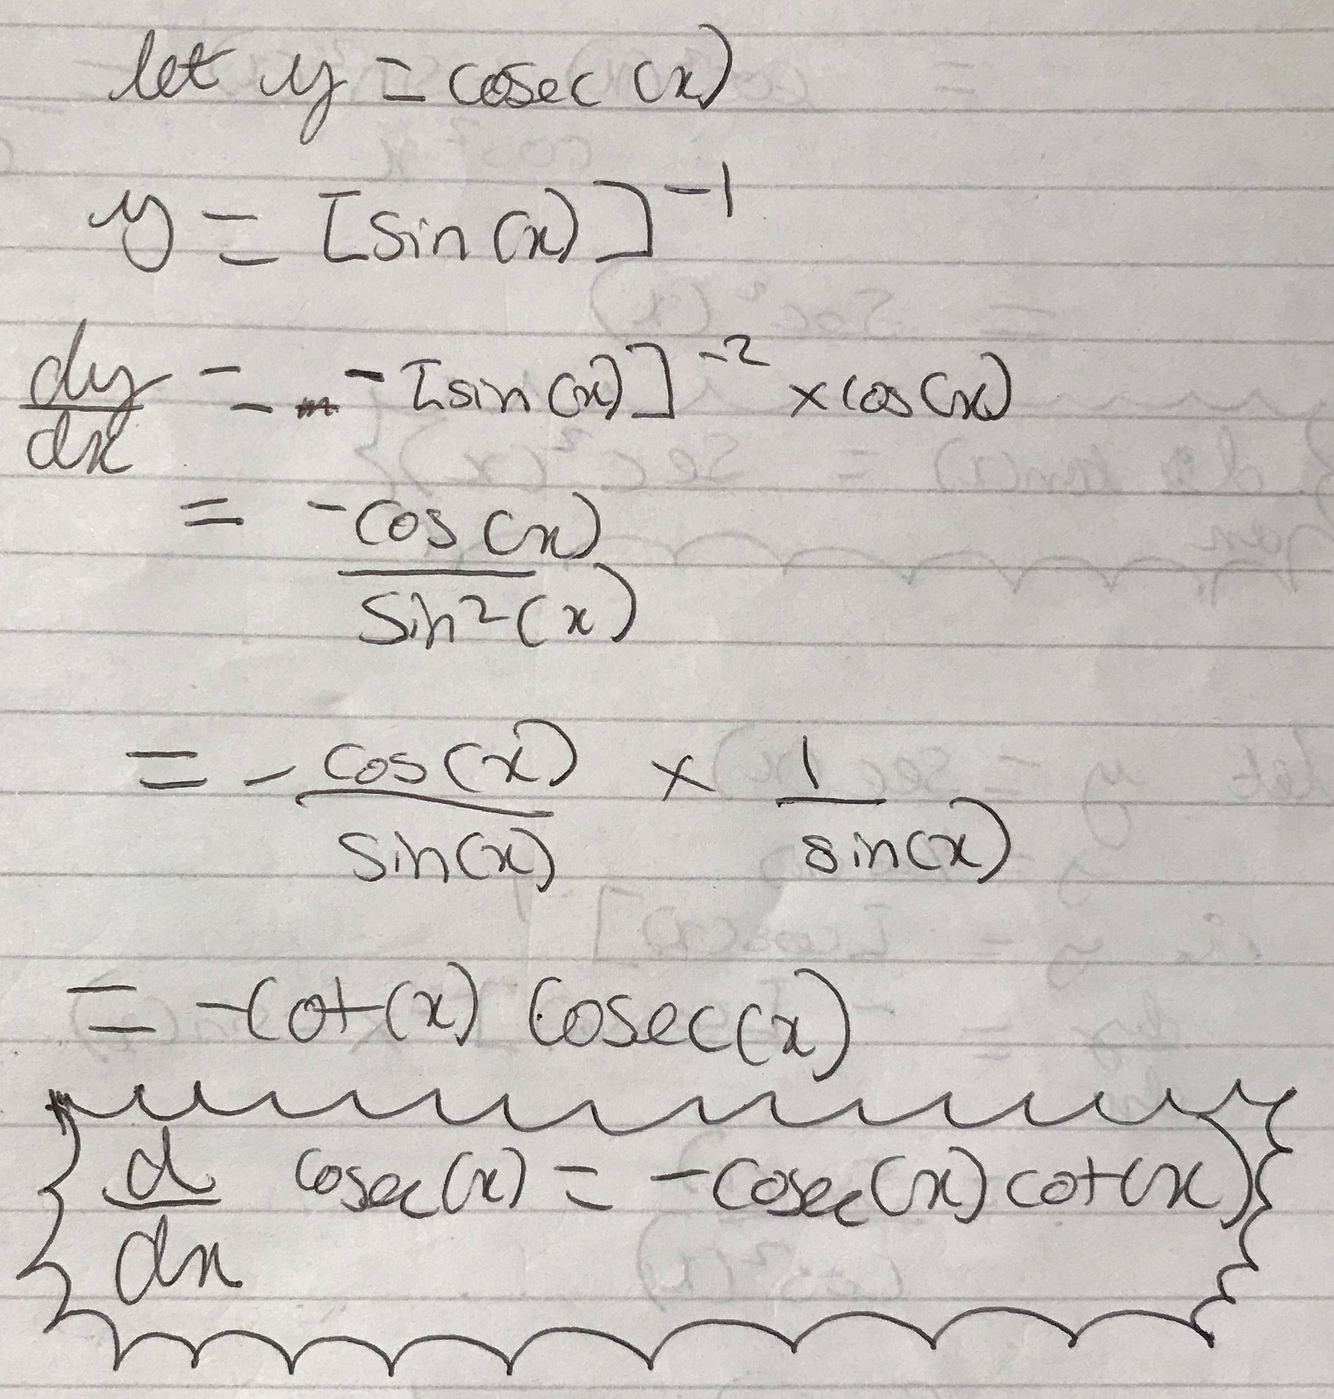 let y = cosec(x)
y = [sin(x)]^-1
dy/dx = -[sin(x)]^-2 × cos(x)
= -cos(x)/sin²(x)
= -cos(x)/sin(x) × 1/sin(x)
= -cot(x) cosec(x)
d/dx cosec(x) = -cosec(x) cot(x)